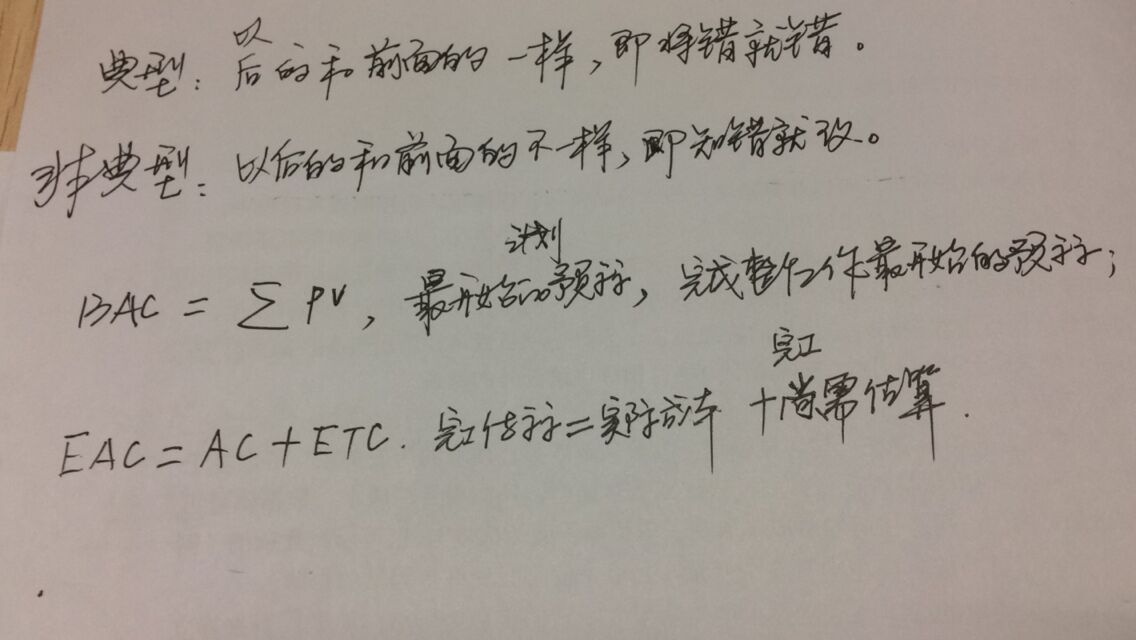 典型：以后的和前面的一样，即将错就错。
非典型：以后的和前面的不一样，即知错就改。
BAC = ∑ PV，最开始的计划预算，完成整个工作最开始的预算；
EAC = AC + ETC. 完工估算 = 实际成本 + 完工尚需估算.